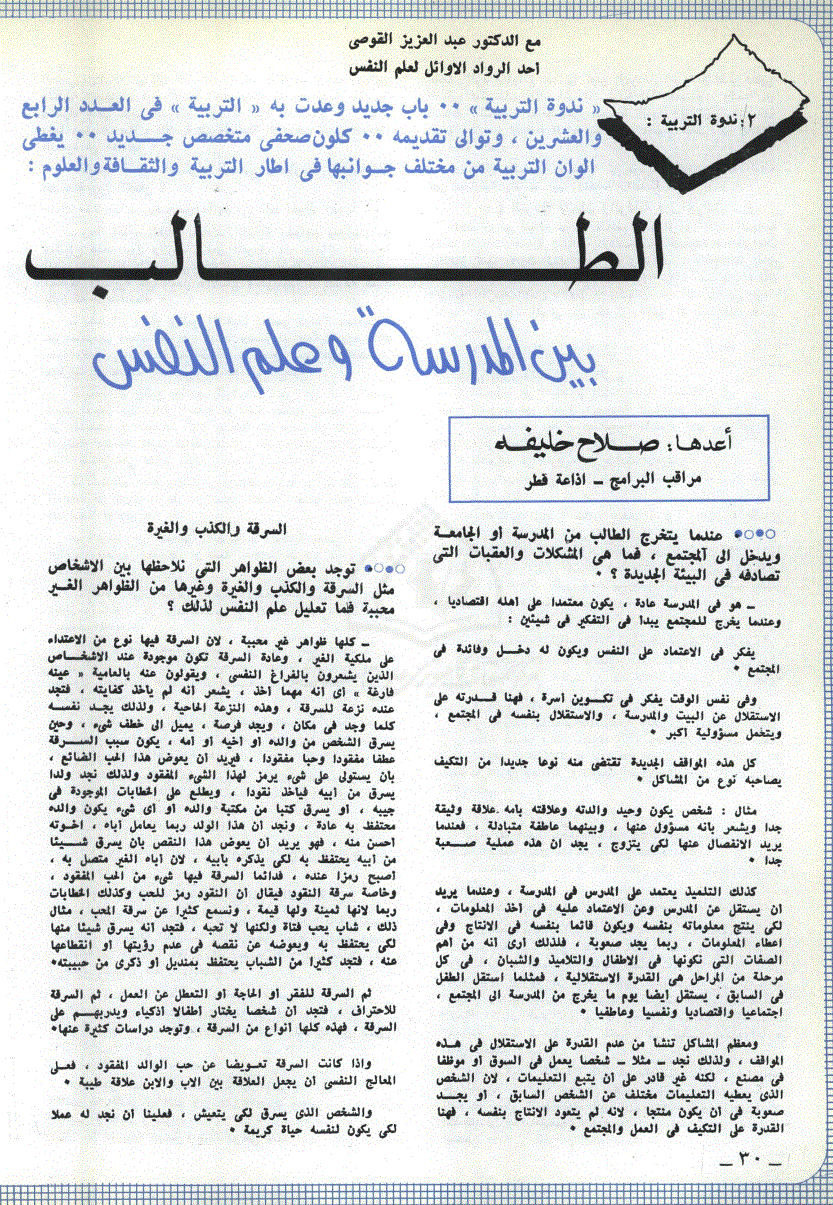 مع الدكتور عبد العزيز القوصى
احد الرواد الاوائل لعلم النفس
٢. ندوة التربية :
« ندوة التربية » ٠٠ باب جديد وعدت به « التربية » فى العدد الرابع
والعشرين ، وتوالى تقديمه ٠٠ كلون صحفى متخصص جـديد ٠٠ يغطى
الوان التربية من مختلف جوانبها فى اطار التربية والثقافة والعلوم :
الطـــالب
بين المدرسة وعلم النفس
أعدها : صـلاح خليفه
مراقب البرامج ــ اذاعة قطر
عندما يتخرج الطالب من المدرسة أو الجامعة
ويدخل الى المجتمع ، فما هى المشكلات والعقبات التى
تصادفه فى البيئة الجديدة ؟ ٠
ــ هو فى المدرسة عادة ، يكون معتمدا على أهله اقتصاديا ،
وعندما يخرج للمجتمع يبدأ فى التفكير فى شيئين :
يفكر فى الاعتماد على النفس ويكون له دخـل وفائدة فى
المجتمع ٠
وفى نفس الوقت يفكر فى تكـوين أسرة ، فهنا قـدرته على
الاستقلال عن البيت والمدرسة ، والاستقلال بنفسه فى المجتمع ،
ويتحمل مسؤولية اكبر ٠
كل هذه المواقف الجديدة تقتضى منه نوعا جديدا من التكيف
يصاحبه نوع من المشاكل ٠
مثال : شخص يكون وحيد والدته وعلاقته بامه علاقة وثيقة
جدا ويشعر بانه مسؤول عنها ، وبينهما عاطفة متبادلة ، فعندما
يريد الانفصال عنها لكى يتزوج ، يجد ان هذه عملية صـعبة
جدا ٠
كذلك التلميذ يعتمد على المدرس فى المدرسة ، وعندما يريد
أن يستقل عن المدرس وعن الاعتماد عليه فى أخذ المعلومات ،
لكى ينتج معلوماته بنفسه ويكون قائما بنفسه فى الانتاج وفى
اعطاء المعلومات ، ربما يجد صعوبة ، فلذلك أرى أنه من أهم
الصفات التى نكونها فى الاطفال والتلاميذ والشبان ، فى كل
مرحلة من المراحل هى القدرة الاستقلالية ، فمثلما استقل الطفل
فى السابق ، يستقل أيضا يوم ما يخرج من المدرسة الى المجتمع ،
اجتماعيا واقتصاديا ونفسيا وعاطفيا ٠
ومعظم المشاكل تنشأ من عدم القدرة على الاستقلال فى هـذه
المواقف ، ولذلك نجد ــ مثلا ــ شخصا يعمل فى السوق أو موظفا
فى مصنع ، لكنه غير قادر على أن يتبع التعليمات ، لان الشخص
الذى يعطيه التعليمات مختلف عن الشخص السابق ، أو يجـد
صعوبة فى أن يكون منتجا ، لانه لم يتعود الانتاج بنفسه ، فهنا
القدرة على التكيف فى العمل والمجتمع ٠
السرقة والكذب والغيرة
توجد بعض الظواهر التى نلاحظها بين الاشخاص
مثل السرقة والكذب والغيرة وغيرها من الظواهر الغير
محببة فما تعليل علم النفس لذلك ؟
ــ كلها ظواهر غير محببة ، لان السرقة فيها نوع من الاعتداء
على ملكية الغير ، وعادة السرقة تكون موجودة عند الاشخاص
الذين يشعرون بالفراغ النفسى ، ويقولون عنه بالعامية « عينه
فارغة » أى أنه مهما أخذ ، يشعر أنه لم يأخذ كفايته ، فتجد
عنده نزعة للسرقة ، وهذه النزعة الحاحية ، ولذلك يجـد نفسـه
كلما وجد فى مكان ، ويجد فرصة ، يميل الى خطف شىء ، وحين
يسرق الشخص من والده أو أخيه أو أمه ، يكون سبب السـرقة
عطفا مفقودا وحبا مفقودا ، فيريد أن يعوض هذا الحب الضائع ،
بان يستولى على شىء يرمز لهذا الشىء المفقود ولذلك نجد ولدا
يسرق من أبيه فياخذ نقودا ، ويطلع على الخطابات الموجودة فى
جيبه ، أو يسرق كتبا من مكتبة والده أو أى شىء يكون والده
محتفظ به عادة ، ونجد أن هذا الولد ربما يعامل أباه ، اخـوته
أحسن منه ، فهو يريد أن يعوض هذا النقص بأن يسرق شـيئا
من أبيه يحتفظ به لكى يذكره بابيه ، لان أباه الغير متصل به ،
أصبح رمزا عنده ، فدائما السرقة فيها شىء من الحب المفقود ،
وخاصة سرقة النقود فيقال أن النقود رمز للحب وكذلك الخطابات
ربما لانها ثمينة ولها قيمة ، ونسمع كثيرا عن سرقة المحب ، مثال
ذلك ، شاب يحب فتاة ولكنها لا تحبه ، فتجد أنه يسرق شيئا منها
لكى يحتفظ به ويعوضه عن نقصه فى عدم رؤيتها أو انقطاعها
عنه ، فتجد كثيرا من الشباب يحتفظ بمنديل أو ذكرى من حبيبته٠
ثم السرقة للفقر أو الحاجة أو التعطل عن العمل ، ثم السرقة
للاحتراف ، فتجد أن شخصا يختار أطفالا اذكياء ويدربهـم على
السرقة ، فهذه كلها أنواع من السرقة ، وتوجد دراسات كثيرة عنها٠
واذا كانت السرقة تعـويضا عن حب الوالد المفقود ، فعـلى
المعالج النفسى أن يجعل العلاقة بين الاب والابن علاقة طيبة ٠
والشخص الذى يسرق لكى يتعيش ، فعلينا أن نجد له عملا
لكى يكون لنفسه حياة كريمة ٠
ــ ٣٠ ــ